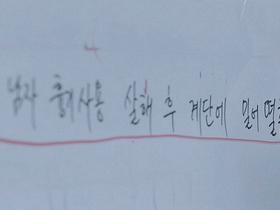 남자 흉기사용 살해 후 계단에 밀어 떨